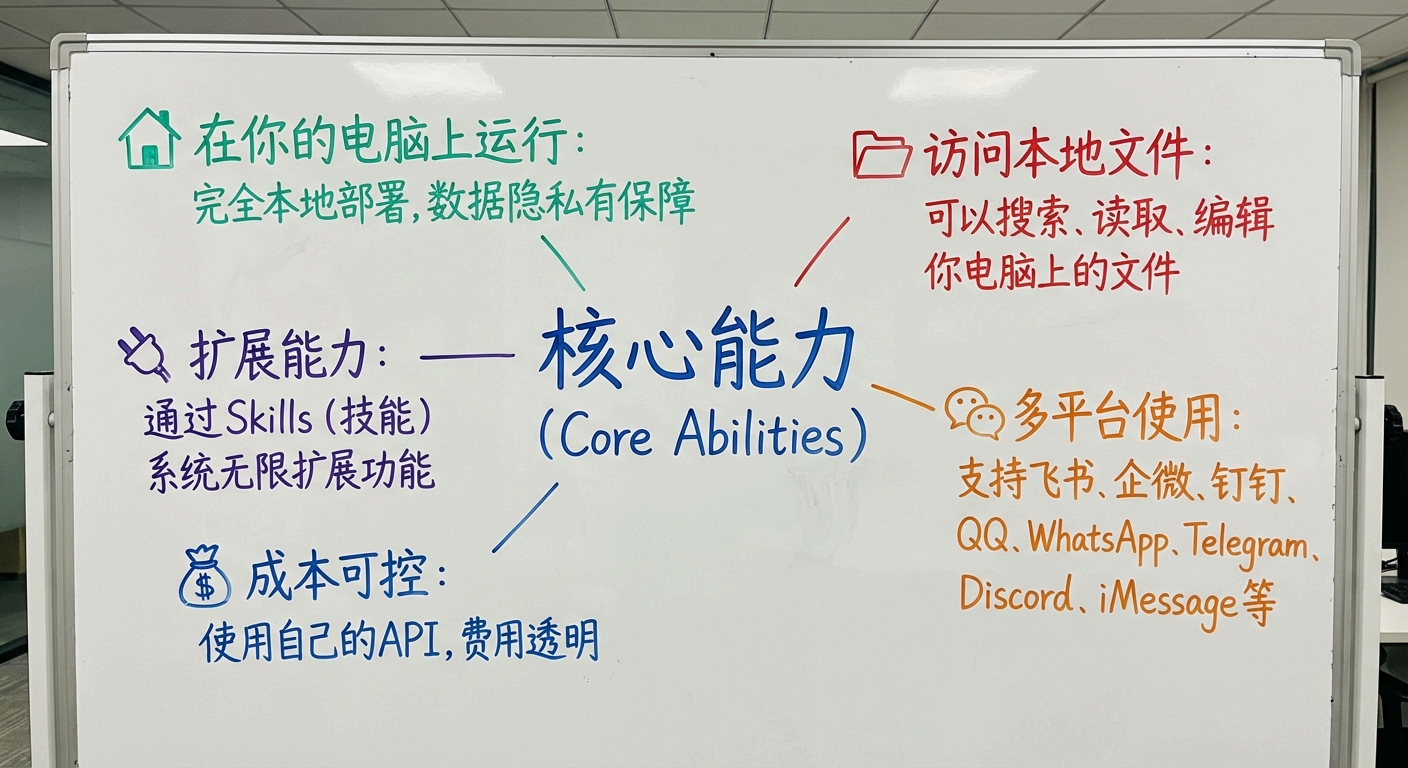 在你的电脑上运行：
完全本地部署，数据隐私有保障
访问本地文件：
可以搜索、读取、编辑
你电脑上的文件
核心能力
(Core Abilities)
扩展能力：
通过Skills（技能）
系统无限扩展功能
多平台使用：
支持飞书、企微、钉钉、
QQ、WhatsApp、Telegram、
Discord、iMessage等
成本可控：
使用自己的API，费用透明